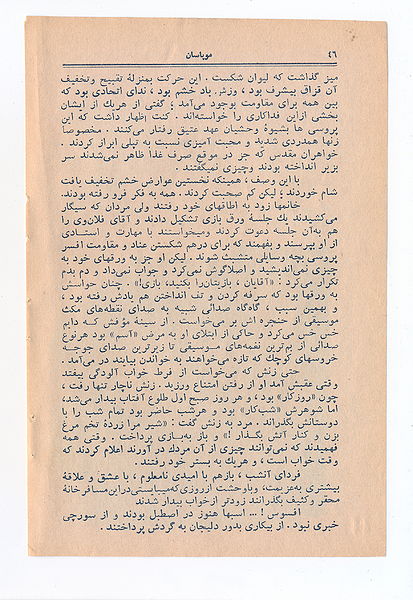 ۴۶
موپاسان
میز گذاشت که لیوان شکست . این حرکت بمنزلهٔ تقبیح وتخفیف
آن قزاق بیشرف بود ، وزش باد خشم بود ، ندای اتحادی بود که
بین همه برای مقاومت بوجود می‌آمد ؛ گفتی از هریك از ایشان
بخشی ازاین فداکاری را خواسته‌اند . کنت اظهار داشت که این
پروسی ها بشیوهٔ وحشیان عهد عتیق رفتار می‌کنند . مخصوصاً
زنها همدردی شدید و محبت آمیزی نسبت به تپلی ابراز کردند .
خواهران مقدس که جز در موقع صرف غذا ظاهر نمی‌شدند سر
بزیر انداخته بودند وچیزی نمیگفتند .
با این وصف ، همینکه نخستین عوارض خشم تخفیف یافت
شام خوردند ؛ لیکن کم صحبت کردند . همه به فکر فرو رفته بودند.
خانمها زود به اطاقهای خود رفتند ولی مردان که سیگار
می‌کشیدند یك جلسهٔ ورق بازی تشکیل دادند و آقای فلان‌وی را
هم به‌آن جلسه دعوت کردند ومیخواستند با مهارت و استادی
از او بپرسند و بفهمند که برای درهم شکستن عناد و مقاومت افسر
پروسی بچه وسایلی متشبث شوند . لیکن او جز به ورقهای خود به
چیزی نمی‌اندیشید و اصلاگوش نمی‌کرد و جواب نمی‌داد و دم بدم
تکرار می‌کرد : «آقایان ، بازیتان‌را بکنید، بازی!» . چنان حواسش
به ورقها بود که سرفه کردن و تف انداختن هم یادش رفته بود ،
و بهمین سبب ، گاه‌گاه صدائی شبیه به صدای نقطه‌های مکث
موسیقی از حنجره اش بر می‌خواست . از سینهٔ مؤفش که دایم
خس خس می‌کرد و حاکی از ابتلای او به مرض «آسم» بود هرنوع
صدائی از بم‌ترین نغمه‌های موسیقی تا زیرترین صدای جوجه
خروسهای کوچك که تازه می‌خواهند به خواندن بیایند در می‌آمد .
حتی زنش که می‌خواست از فرط خواب آلودگی بیفتد
وقتی عقبش آمد او از رفتن امتناع ورزید . زنش ناچار تنها رفت ،
چون «روزکار» بود ، و هر روز صبح اول طلوع آفتاب بیدار می‌شد،
اما شوهرش «شب‌کار» بود و هرشب حاضر بود تمام شب را با
دوستانش بگذراند . مرد به زنش گفت : «شیر مرا زردهٔ تخم مرغ
بزن و کنار آتش بگذار !» و باز به‌بازی پرداخت . وقتی همه
فهمیدند که نمی‌توانند چیزی از آن مردك در آورند اعلام کردند که
وقت خواب است ، و هریك به بستر خود رفتند .
فردای آنشب ، بازهم با امیدی نامعلوم ، با عشق و علاقهٔ
بیشتری به‌عزیمت، وباوحشت ازروزی‌که‌میبایستی‌دراین‌مسافرخانهٔ
محقر وکثیف بگذرانند زودتر ازخواب بیدار شدند
افسوس ! ... اسبها هنوز در اصطبل بودند و از سورچی
خبری نبود . از بیکاری بدور دلیجان به گردش پرداختند .